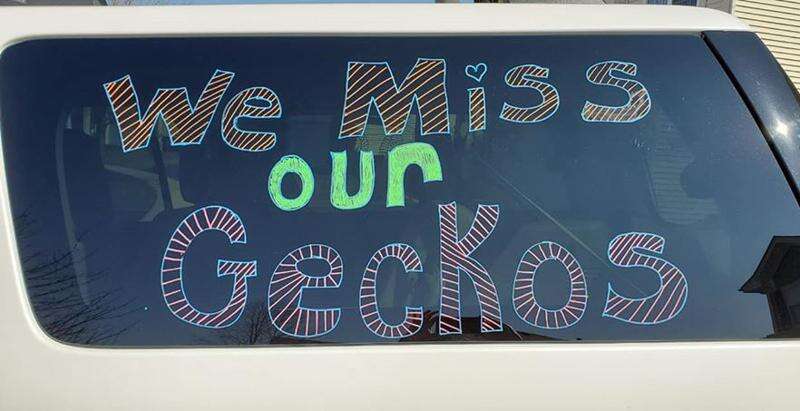 We Miss
our
Geckos